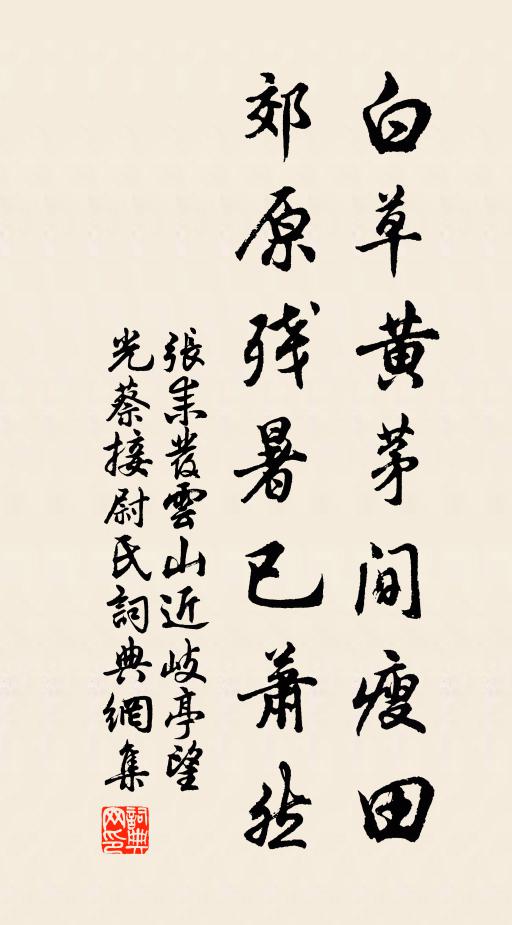 白草黄茅間瘦田
郊原残暑已蕭然
張耒發雲山近岐亭望
光蔡接尉氏詞典網集
詞典網印